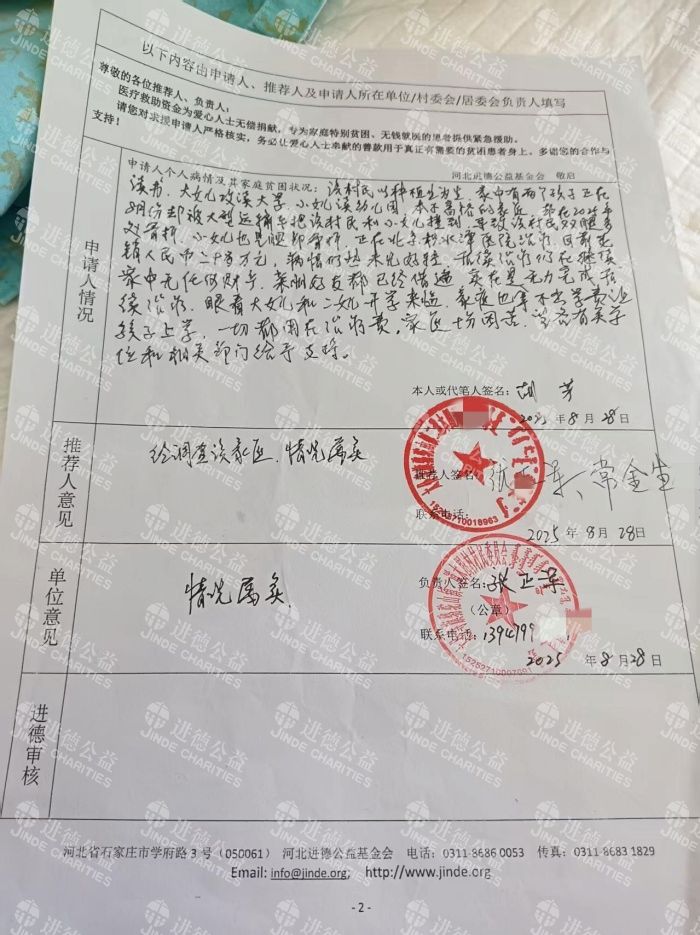 以下内容由申请人、推荐人及申请人所在单位/村委会/居委会负责人填写
尊敬的各位推荐人、负责人：
医疗救助资金为爱心人士无偿捐献，专为家庭特别贫困、无钱就医的患者提供紧急援助。
请您对求援申请人严格核实，务必让爱心人士奉献的善款用于真正有需要的贫困患者身上。多谢您的合作与
支持！
河北进德公益基金会 敬启
申请人情况
申请人个人病情及其家庭贫困状况：该村民以种植为生，家中有两个孩子正在
读书，大女儿攻读大学，小女儿读幼儿园，本不富裕的家庭，却在2025年
却被大型运输车把该村民和小女儿撞到，导致该村民双腿多
处骨折，小女儿也是腿部骨折，正在北京积水潭医院治疗，目前花
销人民币二十多万元，病情仍然未见好转，后续治疗仍在继续
家中无任何财产，亲朋好友都已经借遍，实在是无力完成后
续治疗，眼看大女儿和二女儿开学来临，家庭也拿不出学费让
孩子上学，一切都困在治疗费，家庭十分困苦，
位和相关部门给予支持。
本人或代笔人签名：胡芳
2025年8月28日
推荐人意见
经调查该家庭，情况属实
推荐人签名：张 军、常金生
联系电话：
15252710018963
2025年8月28日
单位意见
情况属实
负责人签名：张
（公章）
联系电话：1394799
2025年8月28日
进德审核
河北省石家庄市学府路3号（050061） 河北进德公益基金会 电话：0311-8686 0053 传真：0311-8683 1829
Email: info@jinde.org; http://www.jinde.org
- 2 -
进德公益
JINDE CHARITIES